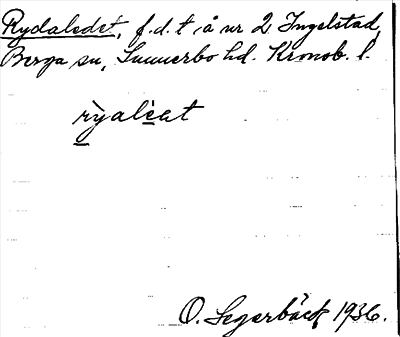 Rydaledet, f.d. t. å nr 2 Ingelstad,
Berga sn, Sunnerbo hd. Kronob. l.
rỳalèat
O. Segerbäck 1936.